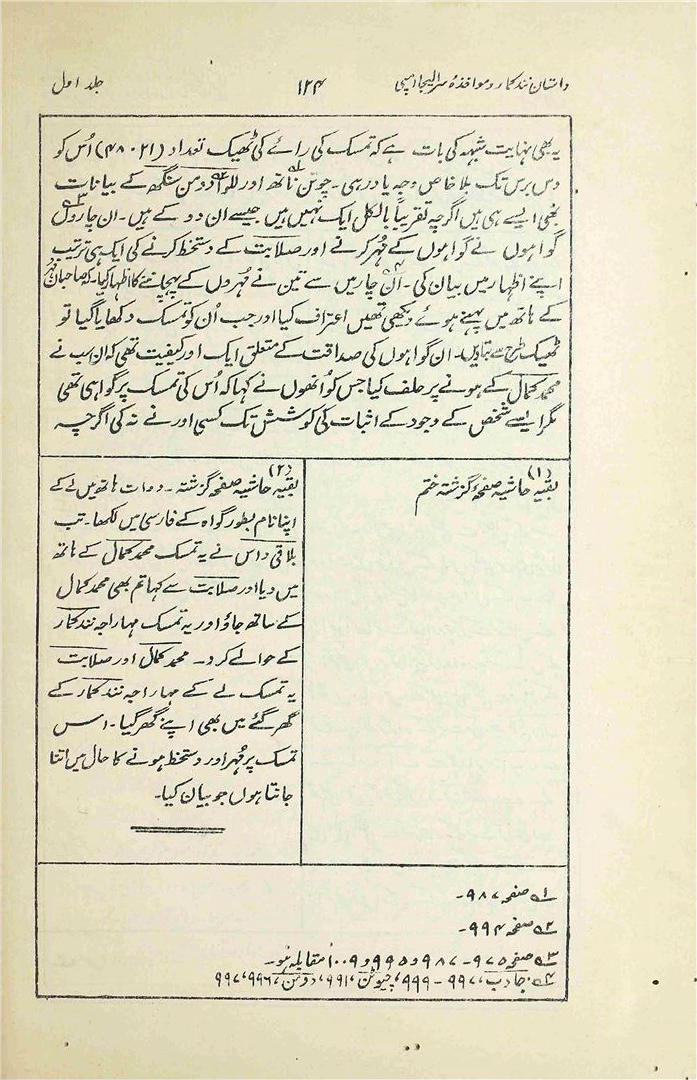 داستان نند کمار و مواخذہ سر الیجا امپی ۱۲۴ جلد اول
یہ بھی نہایت شبہہ کی بات ہے کہ تمسک کی رائے کی ٹھیک تعداد (۴۸۰۲۱) اُس کو
دس برس تک بلا خاص وجہ یاد رہی۔ چوئن ناتھ اور للو دومن سنگھ کے بیانات
بھی ایسے ہی ہیں اگرچہ تقریباً بالکل ایک نہیں ہیں جیسے ان دو کے ہیں۔ ان چاروں
گواہوں نے گواہوں کے مُہر کرنے اور صلابت کے دستخط کرنے کی ایک ہی ترتیب
اپنے اظہار میں بیان کی۔ ان چار میں سے تین نے مُہروں کے پہچاننے کا اظہار کیا۔ کہ صاحبان مُہر
کے ہاتھ میں پہنے ہوئے دیکھی تھیں اعتراف کیا اور جب اُن کو تمسک دکھایا گیا تو
ٹھیک طرح سے بتا دیں۔ ان گواہوں کی صداقت کے متعلق ایک اور کیفیت تھی کہ ان سب نے
محمد کمال کے ہونے پر حلف کیا جس کو اُنھوں نے کہا کہ اُس کی تمسک پر گواہی تھی
مگر ایسے شخص کے وجود کے اثبات کی کوشش تک کسی اور نے نہ کی اگرچہ
(۱)
بقیہ حاشیہ صفحۂ گزشتہ ختم
(۲)
بقیہ حاشیہ صفحہ گزشتہ۔ دوات ہاتھ میں لے کے
اپنا نام بطور گواہ کے فارسی میں لکھا۔ تب
بلاقی داس نے یہ تمسک محمد کمال کے ہاتھ
میں دیا اور صلابت سے کہا تم بھی محمد کمال
کے ساتھ جاؤ اور یہ تمسک مہاراجہ نند کمار
کے حوالے کر د۔ محمد کمال اور صلابت
یہ تمسک لے کے مہاراجہ نند کمار کے
گھر گئے میں بھی اپنے گھر گیا۔ اس
تمسک پر مُہر اور دستخط ہونے کا حال میں اتنا
جانتا ہوں جو بیان کیا۔
۱؎ صفحہ ۹۸۷۔
۲؎ صفحہ ۹۹۴۔
۳؎ صفحہ ۹۷۵۔ ۹۸۷ و ۹۹۵ و ۱۰۰۹ مقابلہ ہو۔
۴؎ جادب، ۹۹۷۔ ۹۹۹، چیوئن، ۹۹۱، دومن، ۹۹۶، ۹۹۷